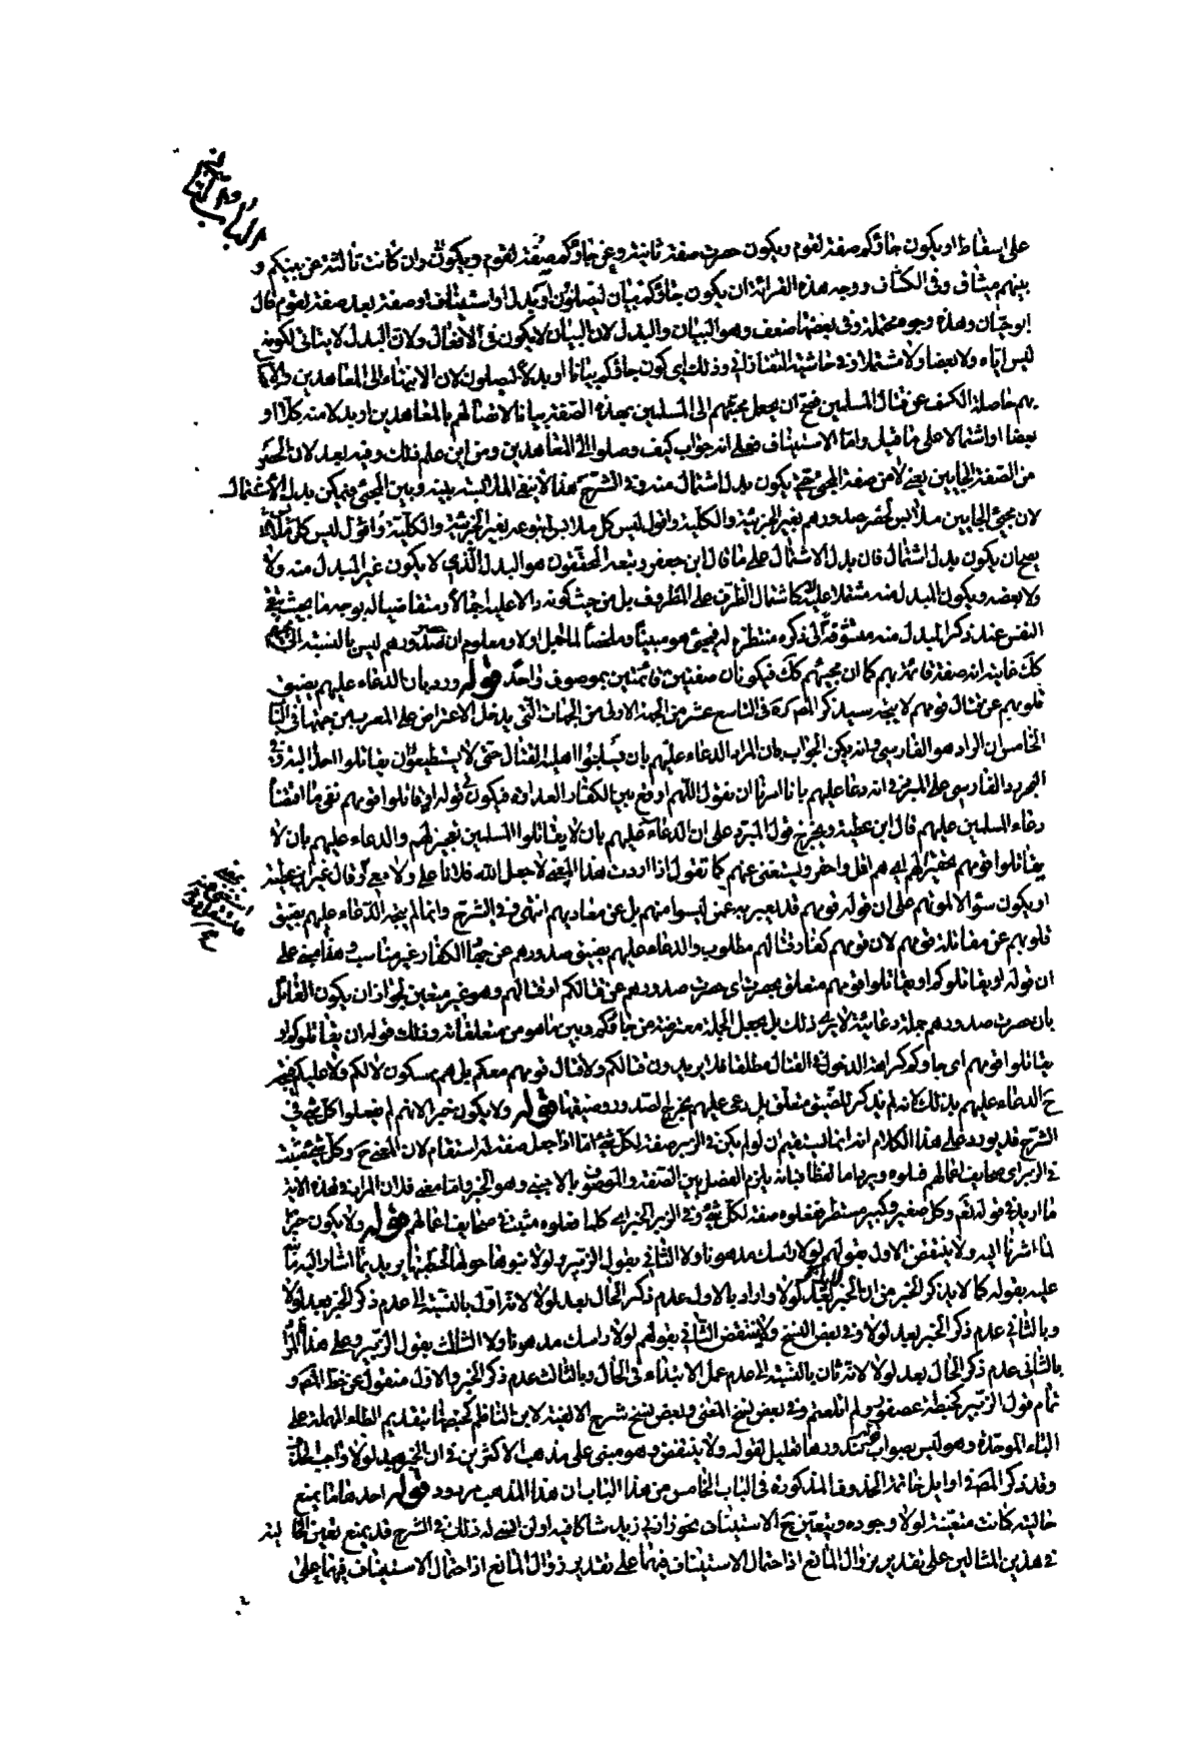 الباب الثاني
على إسقاط او يكون جاؤكم صفة لقوم ويكون حصرت صفة ثانية وعن جاؤكم صفة لقوم ويكون وان كانت ثالثة عن بينكم و
بينهم ميثاق وفى الكشاف ووجه هذه القرائة ان يكون جاؤكم بيان ليصلون او بدلا او استينافا او صفة بعد صفة لقوم قال
ابو حيان وهذه وجوه محتملة وفى بعضها ضعف وهو البيان والبدل لان البيان لا يكون فى الافعال ولان البدل لا يتأتى لكونه
ليس اياه ولا بعضا ولا مشتملا وفى حاشية التفتازانى وذلك اى كون جاؤكم بيانا او بدلا ليصلون لان الانتهاء الى المعاهدين
حاصله الكف عن قتال المسلمين فصح ان يجعل مجيئهم الى المسلمين بهذه الصفة بيانا لاتصالهم بالمعاهدين او بدلا منه كلا او
بعضا او اشتمالا على ما قيل واما الاستيناف فعلى انه جواب كيف وصلوا الى المعاهدين ومن اين علم ذلك وفيه بعد لان الحصر
من الصفة الجايين يعنى لا من صفة المجئ حتى يكون بدل اشتمال منه وفى الشرح هذا لا ينفى الملابسة بينه وبين المجئ فيمكن بدل الاشتمال
لان مجئ الجايين ملابس لحصر صدورهم بغير الجزئية والكلية واقول ليس كل ملابس لمتبوعه بغير الجزئية والكلية
يصح ان يكون بدل اشتمال فان بدل الاشتمال على ما قال ابن جعفر وتبعه المحققون هو البدل الذى لا يكون غير المبدل منه ولا
ولا بعضه ويكون المبدل منه مشتملا عليه لا كاشتمال الظرف على المظروف بل من حيث كونه دالا عليه اجمالا ومتقاضيا له بوجه ما بحيث تبقى
النفس عند ذكر المبدل منه متشوقة الى ذكره منتظرة له فيجئ هو مبينا وملخصا لما اجمل اولا ومعلوم ان حصر صدورهم ليس بالنسبة الى
كك غايته انه صفة قائمة بهم كما ان مجيئهم كك فيكونان صفتين قائمتين بموصوف واحد قوله ورد بان الدعاء عليهم بضيق
قلوبهم عن قتال قومهم لا يتجه سيذكر المص كره فى التاسع عشر من الجهة الاولى من الجهات التى يدخل الاعتراض على المعرب من جهتها فى الباب
الخامس ان الراد هو الفارسى وانه يمكن الجواب بان المراد الدعاء عليهم بان يسلبوا اهلية القتال حتى لا يستطيعون ان يقاتلوا احدا البتة وفى
البحر رد الفارسى على المبرد فى انه دعا عليهم بانا امرنا ان نقول اللهم اوقع بين الكفار العداوة فيكون فى قوله او يقاتلوا قومهم نفى ما اقتضاه
دعاء المسلمين عليهم قال ابن عطية ويخرج قول المبرد على ان الدعاء عليهم بان لا يقاتلوا المسلمين تعجيز لهم والدعاء عليهم بان لا
يقاتلوا قومهم تحقير لهم اى هم اقل واحقر ويستغنى عنهم كما تقول اذا اردت هذا المعنى لا جعل الله فلانا على ولا معى وقال غير ابن عطية
او يكون سؤالا لموتهم على ان قوله قومهم قد يعبر به عمن ليسوا منهم بل عن معاديهم انتهى وفى الشرح وانما لم يتجه الدعاء عليهم بضيق
قلوبهم عن مقاتلة قومهم لان قومهم كفار وقتالهم مطلوب والدعاء عليهم بضيق صدورهم عن الكفار غير مناسب ومبناه على
ان قوله او يقاتلوكم او يقاتلوا قومهم متعلق بحصرت اى حصرت صدورهم عن قتالكم او قتالهم وهو غير متعين لجواز ان يكون القائل
بان حصرت صدورهم جملة دعائية لا يرى ذلك بل يجعل الجملة معترضة من جاؤكم وبين ما هو من متعلقاته وذلك قوله ان يقاتلوكم او
يقاتلوا قومهم اى جاؤكم كراهة الدخول فى القتال مطلقا فلا يريدون قتالكم ولا قتال قومهم معكم بل هم ممسكون لا لكم ولا عليكم
ح الدعاء عليهم بذلك لانه لم يذكر للضيق متعلق بل دعى عليهم بحرج الصدور وضيقها قوله ولا يكون خبرا لانهم لم يفعلوا كل شئ فى
الشرح قد يورد على هذا الكلام انه انما يستقيم ان لو لم يكن فى الزبر صفة لكل شئ اما اذا جعل صفة له استقام لان المعنى ح وكل شئ مثبت
فى الزبر اى صحايف اعمالهم فعلوه ويرد اما لفظا فبانه يلزم الفصل بين الصفة والموصوف بالاجنبى وهو الخبر واما معنى فلان المراد فى هذه الاية
ما اريد فى قوله تعم وكل صغير وكبير مستطر ففعلوه صفة لكل شئ وفى الزبر الخبر اى كلما فعلوه مثبت فى صحايف اعمالهم قوله ولا يكون خبرا
لما اشرنا اليه ولا ينتقض الاول بقولهم لولا راسك مدهونا ولا الثانى بقول الزبير لولا بنوها حولها لخبطتها يريد بما اشار اليه ما نبه
عليه بقوله كما لا يذكر الخبر من ان الخبر بعد لولا واراد بالاول عدم ذكر الحال بعد لولا لانه اول بالنسبة الى عدم ذكر الخبر بعد لولا
وبالثانى عدم ذكر الخبر بعد لولا وفى بعض النسخ ولا ينتقض الثانى بقولهم لولا راسك مدهونا ولا الثالث بقول الزبير وعلى هذا
بالثانى عدم ذكر الحال بعد لولا لانه ثان بالنسبة الى عدم عمل الابتداء فى الحال وبالثالث عدم ذكر الخبر والاول منقول عن خط المص و
تمام قول الزبير كخبطة عصفور ولم اتلعثم وفى بعض نسخ المغنى وبعض نسخ شرح الالفية لابن الناظم لخطبتها بتقديم الطاء المهملة على
الباء الموحدة وهو ليس بصواب تعليل لقوله ولا ينتقض وهو مبنى على مذهب الاكثرين فى ان الخبر بعد لولا واجب الحذف
وقد ذكر المص فى اوايل خاتمة الحذوف المذكورة فى الباب الخامس من هذا الكتاب ان هذا المذهب مردود قوله احدهما ما يمنع
حالية كانت متعينة لولا وجوده ويتعين ح الاستيناف نحو زارنى زيد سأكافيه او لن انسى له ذلك فى الشرح قد يمنع تعين الحالية
فى هذين المثالين على تقدير بزوال المانع اذ احتمال الاستيناف فيهما على تقدير زوال المانع اذ احتمال الاستيناف فيهما على